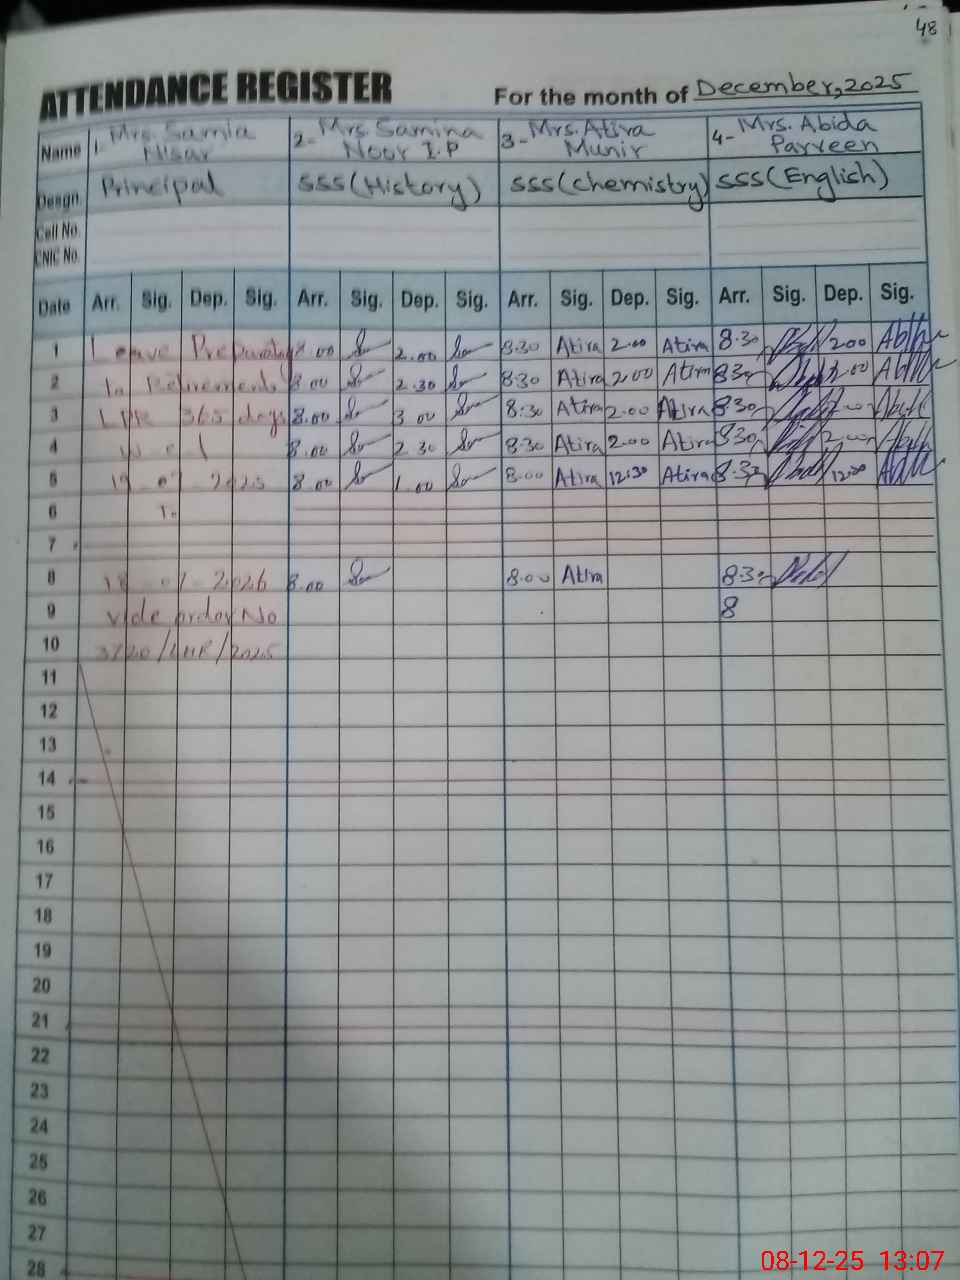 48
ATTENDANCE REGISTER For the month of December, 2025
Name 1. Mrs. Samia Nisar 2- Mrs Samina Noor I.P 3- Mrs. Atira Munir 4- Mrs. Abida Parveen
Desgn. Principal SSS(History) SSS(Chemistry) SSS(English)
Cell No.
CNIC No.
Date Arr. Sig. Dep. Sig. Arr. Sig. Dep. Sig. Arr. Sig. Dep. Sig. Arr. Sig. Dep. Sig.
1 Leave Preparatory 8.00 2.00 8:30 Atira 2.00 Atira 8.30 2.00
2 To Retirement 8.00 2.30 8:30 Atira 2.00 Atira 8.30 2.00
3 LPR 365 days 8.00 3.00 8:30 Atira 2.00 Atira 8.30 2.00
4 w e f 8.00 2.30 8:30 Atira 2.00 Atira 8.30 2.00
5 2025 8.00 1.00 8.00 Atira 12:30 Atira 8.30 12.30
6 To
7
8 2026 8.00 8.00 Atira 8.30
9 vide order No 8
10 /2025
11
12
13
14
15
16
17
18
19
20
21
22
23
24
25
26
27
28
08-12-25 13:07